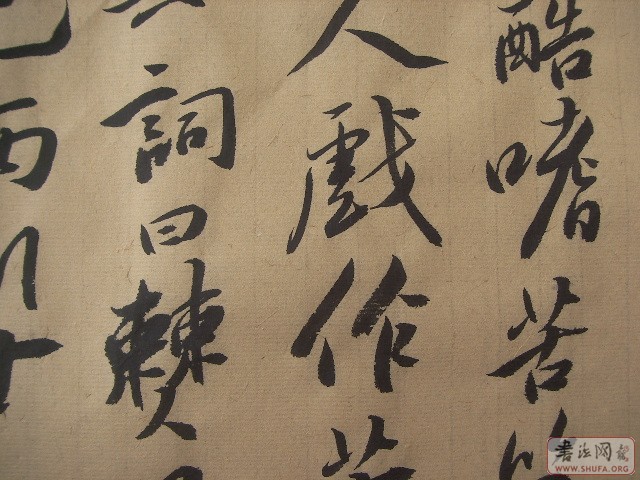 酷嗜苦
人戲作苦
詞曰僰
両川
書法网
WWW.SHUFA.ORG